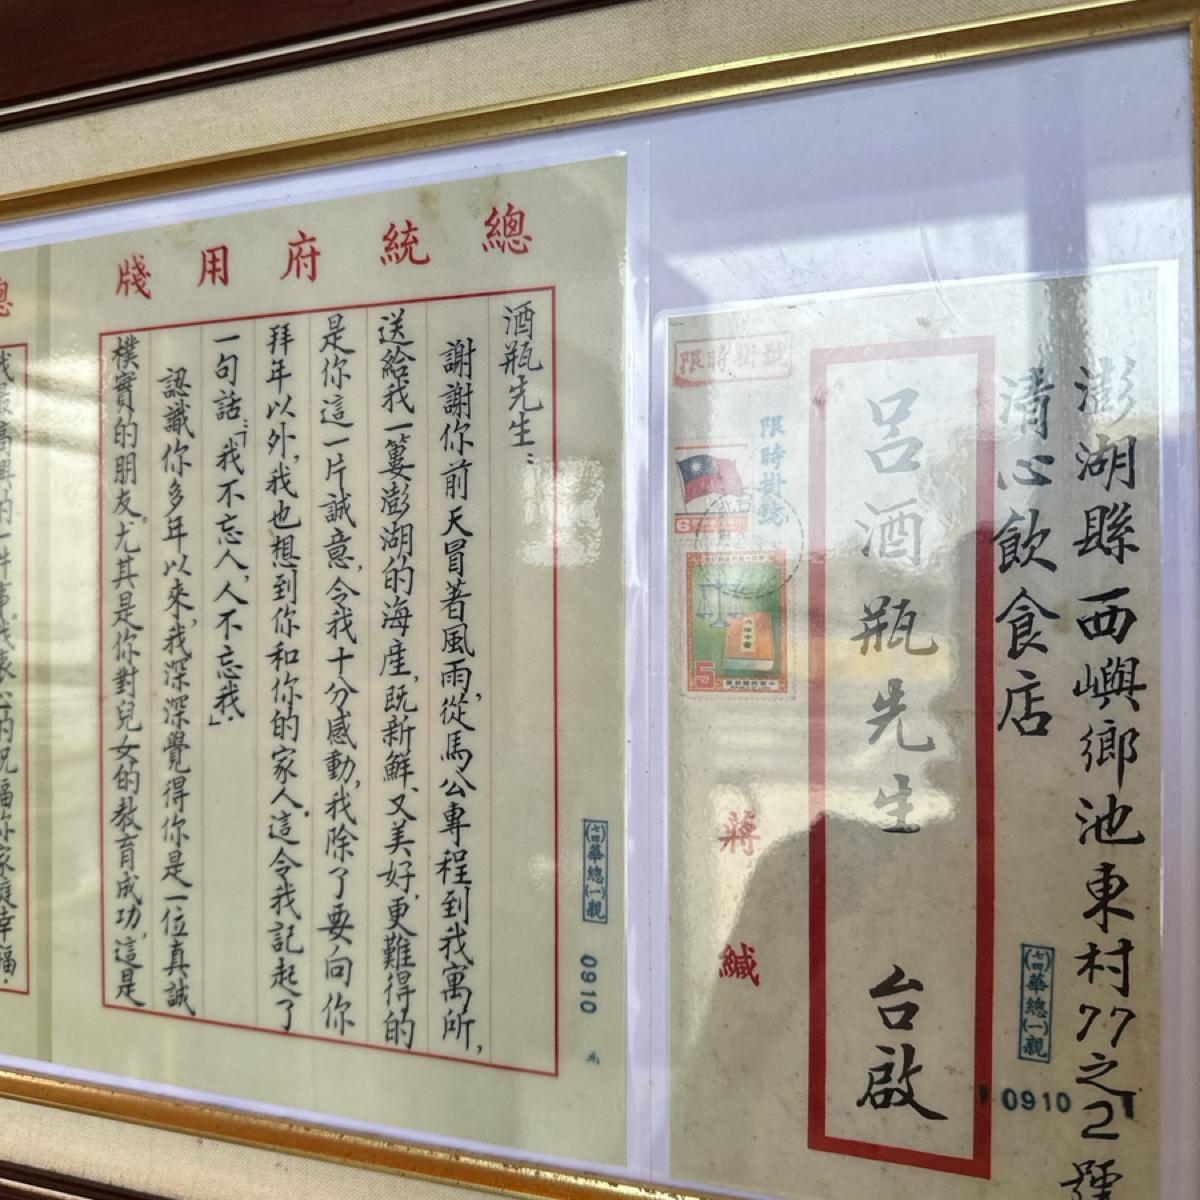 澎湖縣西嶼鄉池東村77之2號
清心飲食店
呂酒瓶先生 台啟
七四華總(一)親
0910
限時掛號
限時掛號
6
5
蔣 緘
總統府用牋
酒瓶先生：
謝謝你前天冒著風雨，從馬公專程到我寓所，
送給我一簍澎湖的海產，既新鮮、又美好，更難得的
是你這一片誠意，令我十分感動，我除了要向你
拜年以外，我也想到你和你的家人。這令我記起了
一句話：「我不忘人，人不忘我。」
認識你多年以來，我深深覺得你是一位真誠
樸實的朋友。尤其是你對兒女的教育成功，這是
七四華總(一)親
0910
總
我最高興的一件事。我衷心的祝福你家庭幸福。